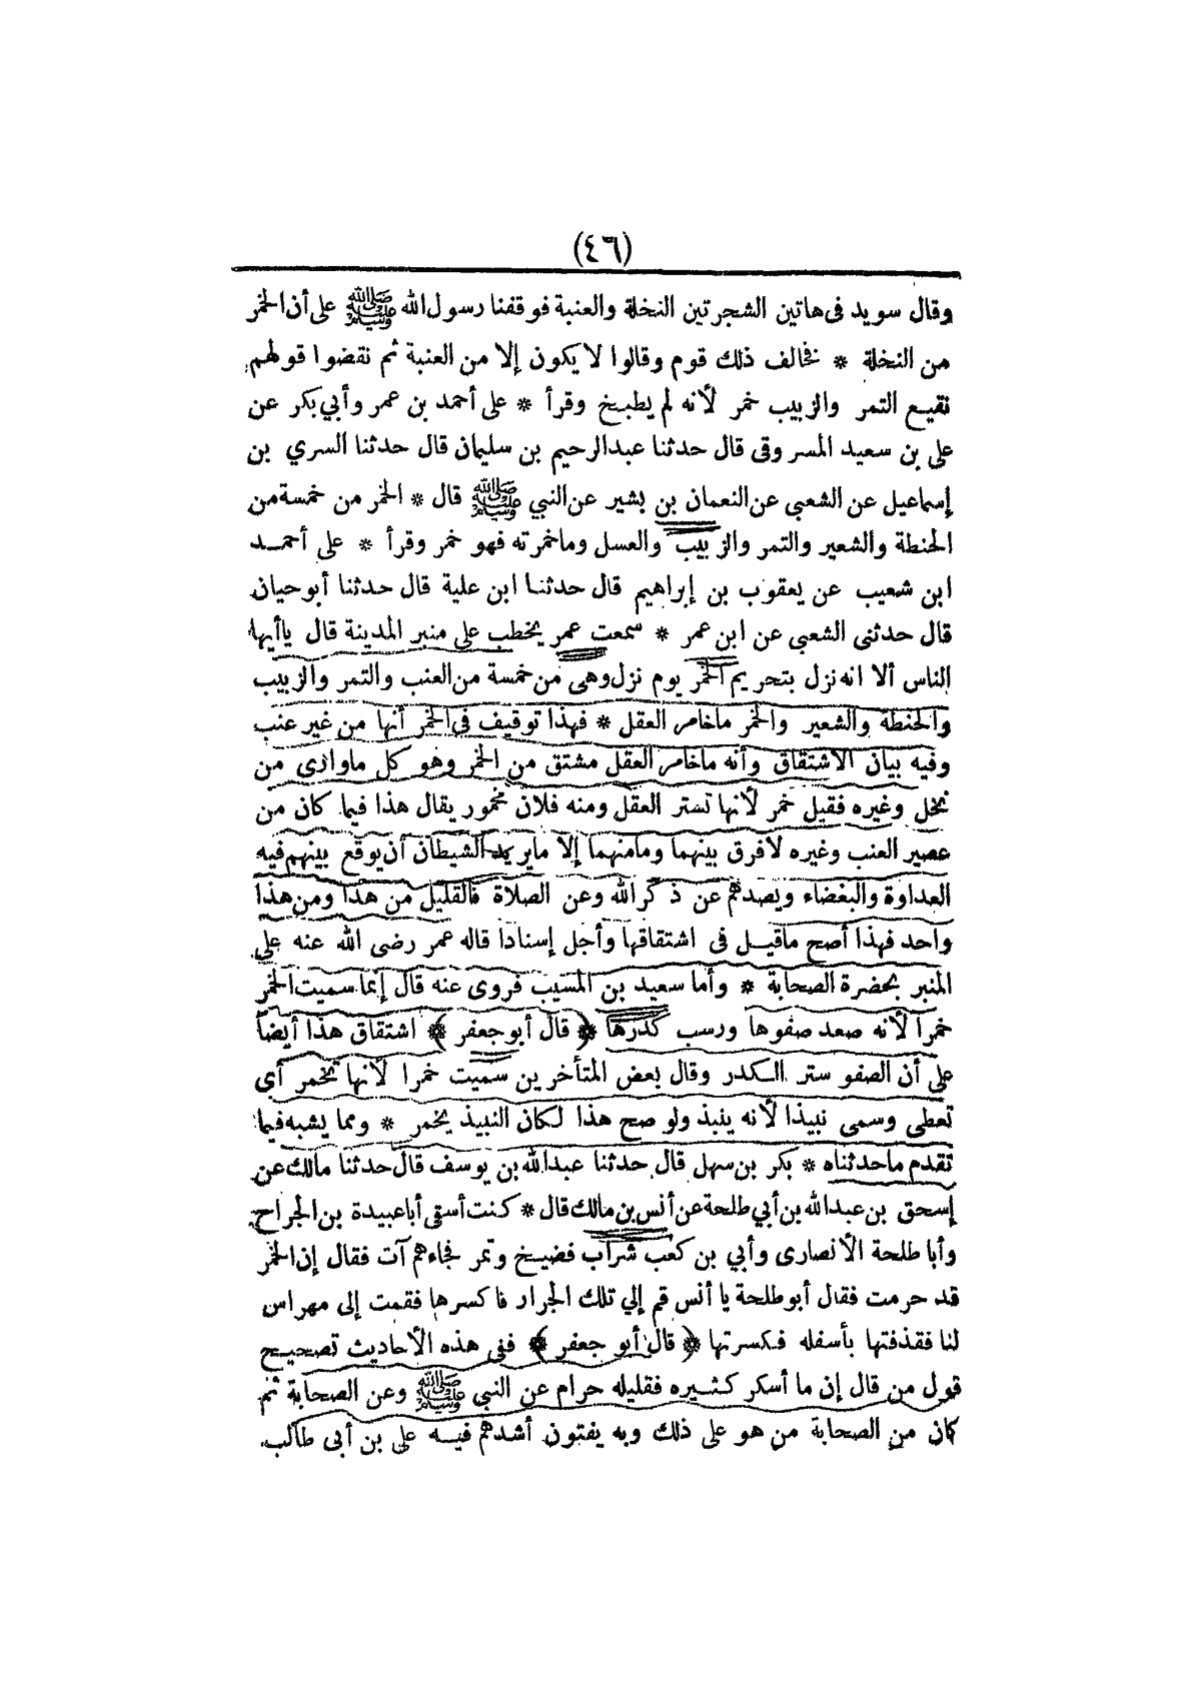 (٤٦)
وقال سويد فى هاتين الشجرتين النخلة والعنبة فوقفنا رسول الله ﷺ على أن الخمر
من النخلة * فخالف ذلك قوم وقالوا لا يكون إلا من العنبة ثم نقضوا قولهم
نقيع التمر والزبيب خمر لأنه لم يطبخ وقرأ * على أحمد بن عمر وأبي بكر عن
على بن سعيد المسروقى قال حدثنا عبدالرحيم بن سليمان قال حدثنا السري بن
إسماعيل عن الشعبي عن النعمان بن بشير عن النبي ﷺ قال * الخمر من خمسة من
الحنطة والشعير والتمر والزبيب والعسل وماخمرته فهو خمر وقرأ * على أحمد
ابن شعيب عن يعقوب بن إبراهيم قال حدثنا ابن علية قال حدثنا أبوحيان
قال حدثنى الشعبي عن ابن عمر * سمعت عمر يخطب على منبر المدينة قال ياأيها
الناس ألا انه نزل بتحريم الخمر يوم نزل وهى من خمسة من العنب والتمر والزبيب
والحنطة والشعير والخمر ماخامر العقل * فهذا توقيف فى الخمر أنها من غير عنب
وفيه بيان الاشتقاق وأنه ماخامر العقل مشتق من الخمر وهو كل ماوارى من
نخل وغيره فقيل خمر لأنها تستر العقل ومنه فلان مخمور يقال هذا فيما كان من
عصير العنب وغيره لا فرق بينهما ومامنهما إلا مايريد الشيطان أن يوقع بينهم فيه
العداوة والبغضاء ويصدهم عن ذكر الله وعن الصلاة فالقليل من هذا ومن هذا
واحد فهذا أصح ماقيل فى اشتقاقها وأجل إسنادا قاله عمر رضى الله عنه على
المنبر بحضرة الصحابة * وأما سعيد بن المسيب فروى عنه قال إنما سميت الخمر
خمرا لأنه صعد صفوها ورسب كدرها * ﴿ قال أبوجعفر ﴾ * اشتقاق هذا أيضاً
على أن الصفو ستر الكدر وقال بعض المتأخرين سميت خمرا لأنها تخمر أي
تغطى وسمى نبيذا لأنه ينبذ ولو صح هذا لكان النبيذ يخمر * ومما يشبه فيما
تقدم ماحدثناه * بكر بن سهل قال حدثنا عبدالله بن يوسف قال حدثنا مالك عن
إسحق بن عبدالله بن أبي طلحة عن أنس بن مالك قال * كنت أسقى أباعبيدة بن الجراح
وأبا طلحة الأنصارى وأبي بن كعب شراب فضيخ وتمر فجاءهم آت فقال إن الخمر
قد حرمت فقال أبوطلحة يا أنس قم إلي تلك الجرار فاكسرها فقمت إلى مهراس
لنا فقذفتها بأسفله فكسرتها ﴿ * قال أبو جعفر * ﴾ ففى هذه الأحاديث تصحيح
قول من قال إن ما أسكر كثيره فقليله حرام عن النبي ﷺ وعن الصحابة ثم
كان من الصحابة من هو على ذلك وبه يفتون أشدهم فيه على بن أبى طالب